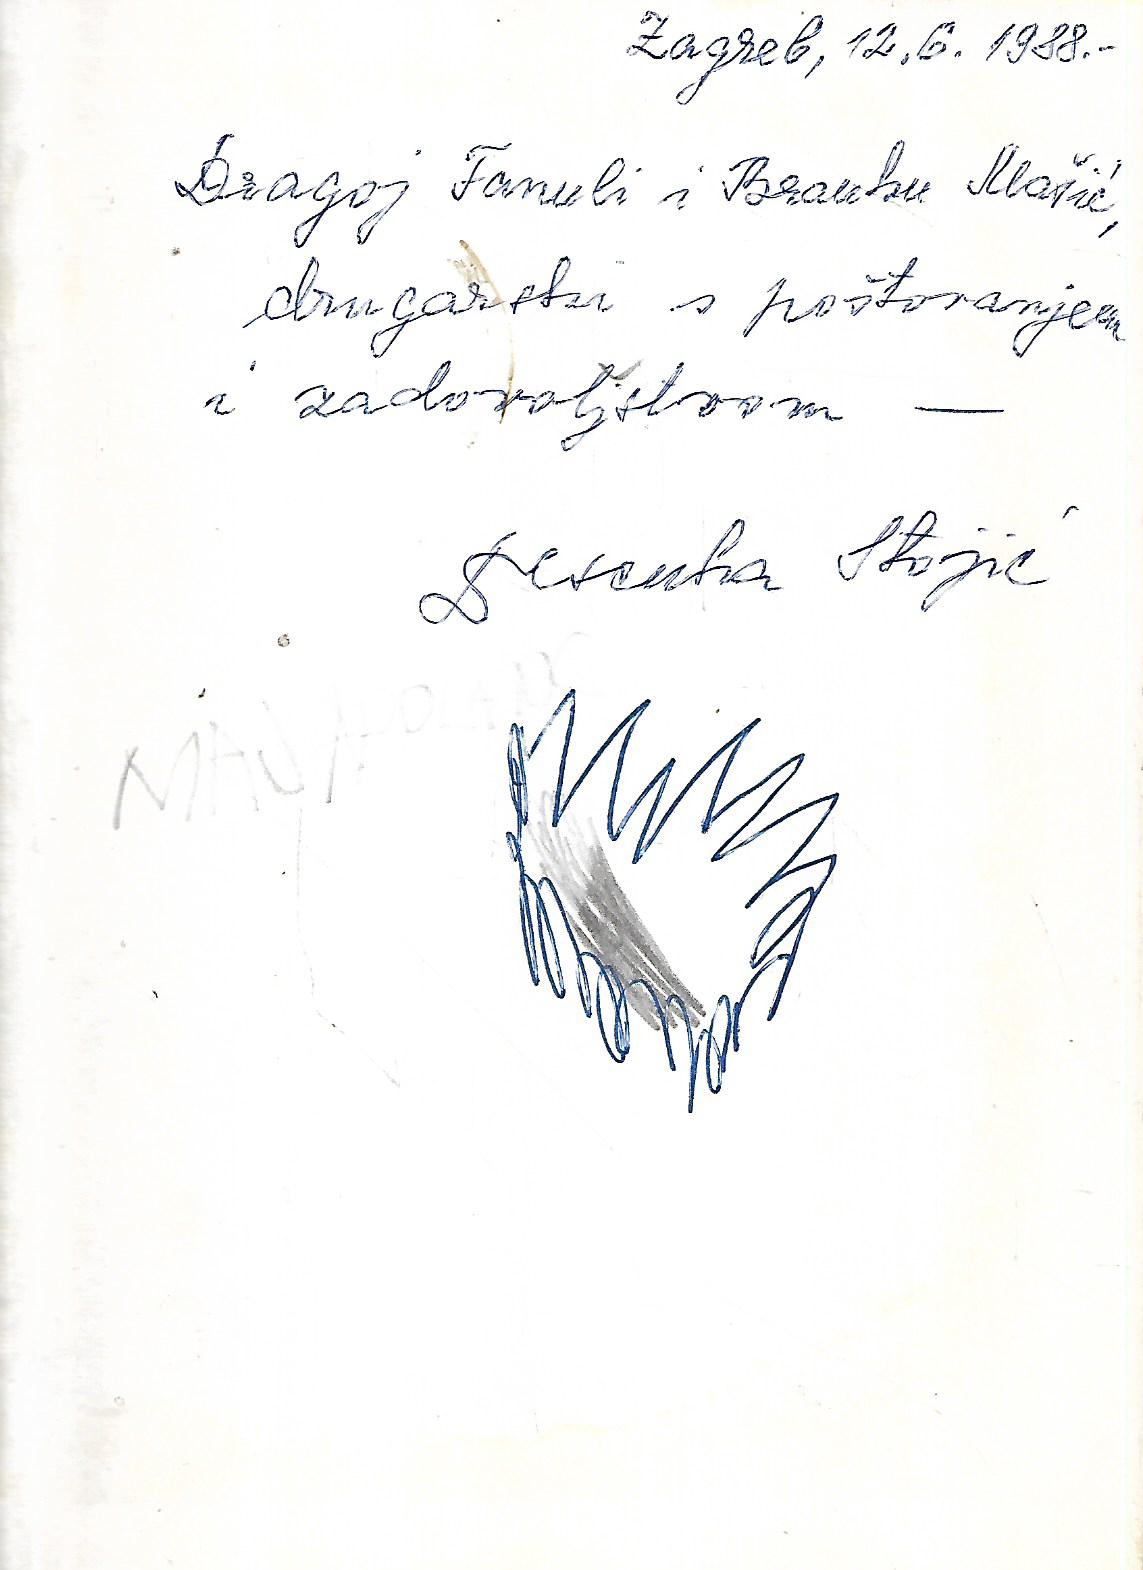 Zagreb, 12.6. 1988.-
Dragoj Fanuli i Branku Mašić,
drugarski s poštovanjem
i zadovoljstvom —
Desenka Stojić